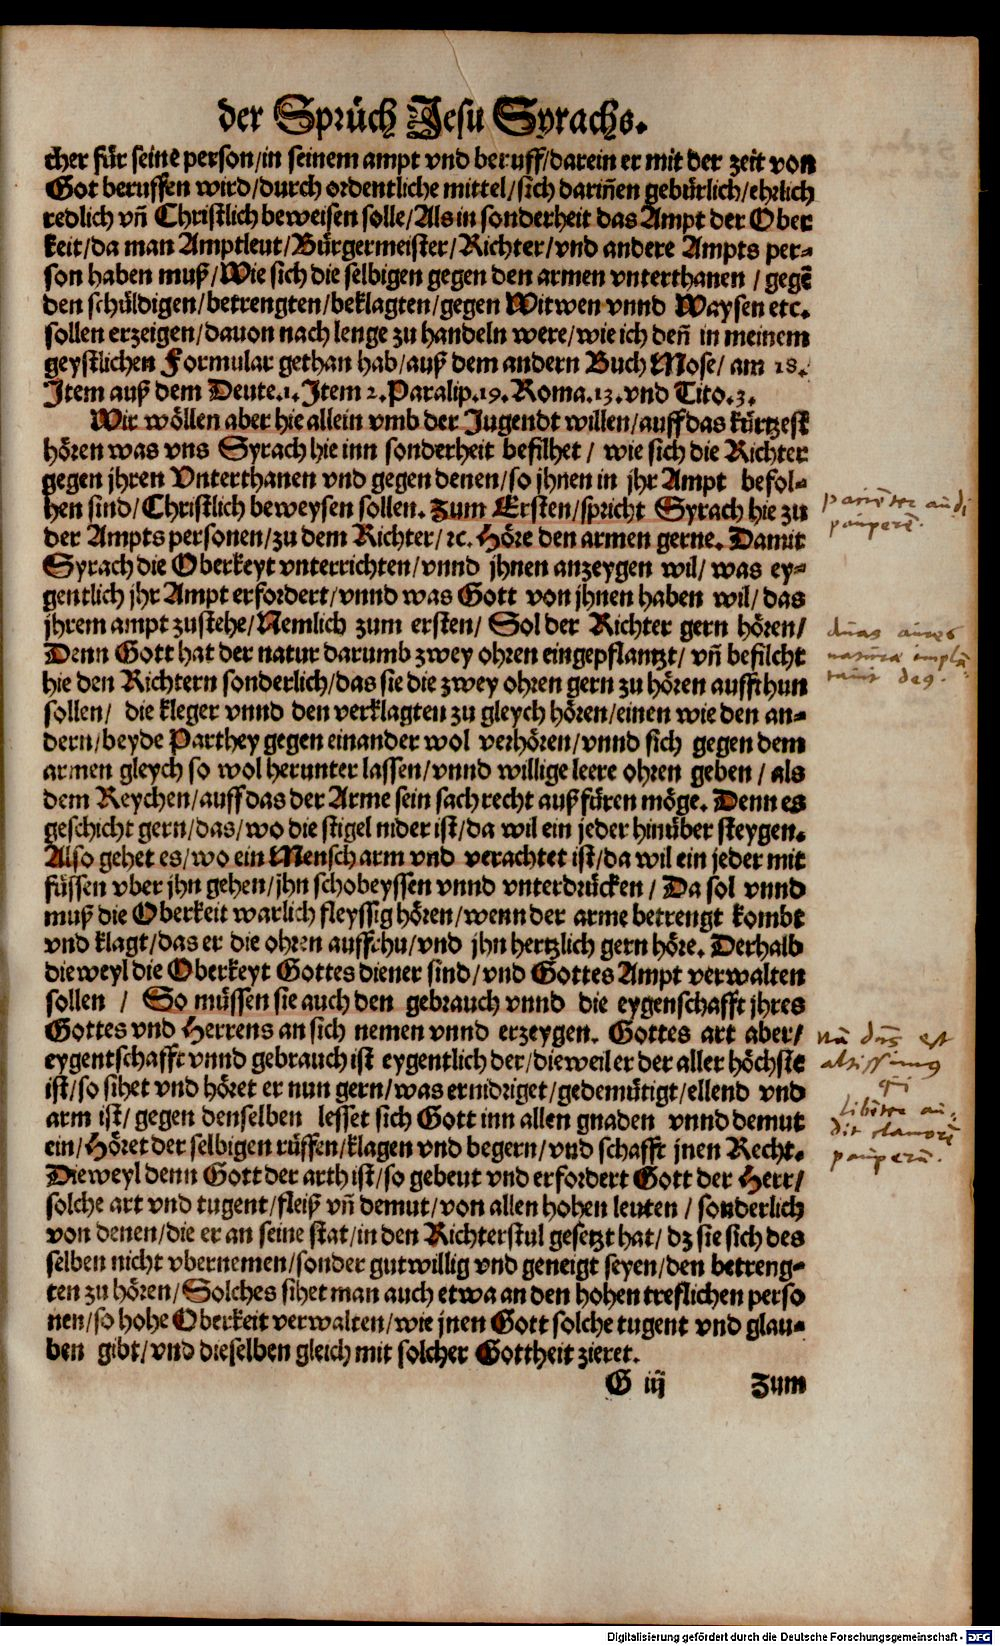 der Sprüch Jesu Syrachs.
cher für seine person/in seinem ampt vnd beruff/darein er mit der zeit von
Got beruffen wird/durch ordentliche mittel/sich dariñen gebürlich/ehrlich
redlich vñ Christlich beweisen solle/Als in sonderheit das Ampt der Ober
keit/da man Amptleut/Bürgermeister/Richter/vnd andere Ampts per-
son haben muß/Wie sich die selbigen gegen den armen vnterthanen/gegē
den schüldigen/betrengten/beklagten/gegen Witwen vnnd Waysen etc.
sollen erzeigen/dauon nach lenge zu handeln were/wie ich deñ in meinem
geystlichen Formular gethan hab/auß dem andern Buch Mose/am 18.
Item auß dem Deute.1. Item 2. Paralip.19. Roma.13. vnd Tito.3.
Wir wöllen aber hie allein vmb der Jugendt willen/auff das kürtzest
hören was vns Syrach hie inn sonderheit befilhet/ wie sich die Richter
gegen jhren Vnterthanen vnd gegen denen/so jhnen in jhr Ampt befol-
hen sind/Christlich beweysen sollen. Zum Ersten/spricht Syrach hie zu
der Ampts personen/zu dem Richter/ꝛc. Höre den armen gerne. Damit
Syrach die Oberkeyt vnterrichten/vnnd jhnen anzeygen wil/was ey-
gentlich jhr Ampt erfordert/vnnd was Gott von jhnen haben wil/das
jhrem ampt zustehe/Nemlich zum ersten/ Sol der Richter gern hören/
Denn Gott hat der natur darumb zwey ohren eingepflantzt/vñ befilcht
hie den Richtern sonderlich/das sie die zwey ohren gern zu hören auffthun
sollen/ die kleger vnnd den verklagten zu gleych hören/einen wie den an-
dern/beyde Parthey gegen einander wol verhören/vnnd sich gegen dem
armen gleych so wol herunter lassen/vnnd willige leere ohren geben/als
dem Reychen/auff das der Arme sein sach recht auß füren möge. Denn es
geschicht gern/das/wo die stigel nider ist/da wil ein jeder hinüber steygen.
Also gehet es/wo ein Mensch arm vnd verachtet ist/da wil ein jeder mit
füssen vber jhn gehen/jhn schobeyssen vnnd vnterdrücken/ Da sol vnnd
muß die Oberkeit warlich fleyssig hören/wenn der arme betrengt kombt
vnd klagt/das er die ohren auffthu/vnd jhn hertzlich gern höre. Derhalb
dieweyl die Oberkeyt Gottes diener sind/vnd Gottes Ampt verwalten
sollen/ So müssen sie auch den gebrauch vnnd die eygenschafft jhres
Gottes vnd Herrens an sich nemen vnnd erzeygen. Gottes art aber/
eygentschafft vnnd gebrauch ist eygentlich der/dieweil er der aller höchste
ist/so sihet vnd höret er nun gern/was ernidriget/gedemütigt/ellend vnd
arm ist/gegen denselben lesset sich Gott inn allen gnaden vnnd demut
ein/Höret der selbigen rüffen/klagen vnd begern/vnd schafft jnen Recht.
Dieweyl denn Gott der arth ist/so gebeut vnd erfordert Gott der Herr/
solche art vnd tugent/fleiß vñ demut/von allen hohen leuten/sonderlich
von denen/die er an seine stat/in den Richterstul gesetzt hat/dz sie sich des
selben nicht vbernemen/sonder gutwillig vnd geneigt seyen/den betreng-
ten zu hören/Solches sihet man auch etwa an den hohen treflichen perso
nen/so hohe Oberkeit verwalten/wie jnen Gott solche tugent vnd glau-
ben gibt/vnd dieselben gleich mit solcher Gottheit zieret.
G iij Zum
audi
pauperē.
duas aures
natura implā
tauit deꝰ.
nā dn̄s est
altissimus
qui
libēter au-
dit clamorē
pauperū.
Digitalisierung gefördert durch die Deutsche Forschungsgemeinschaft - DFG